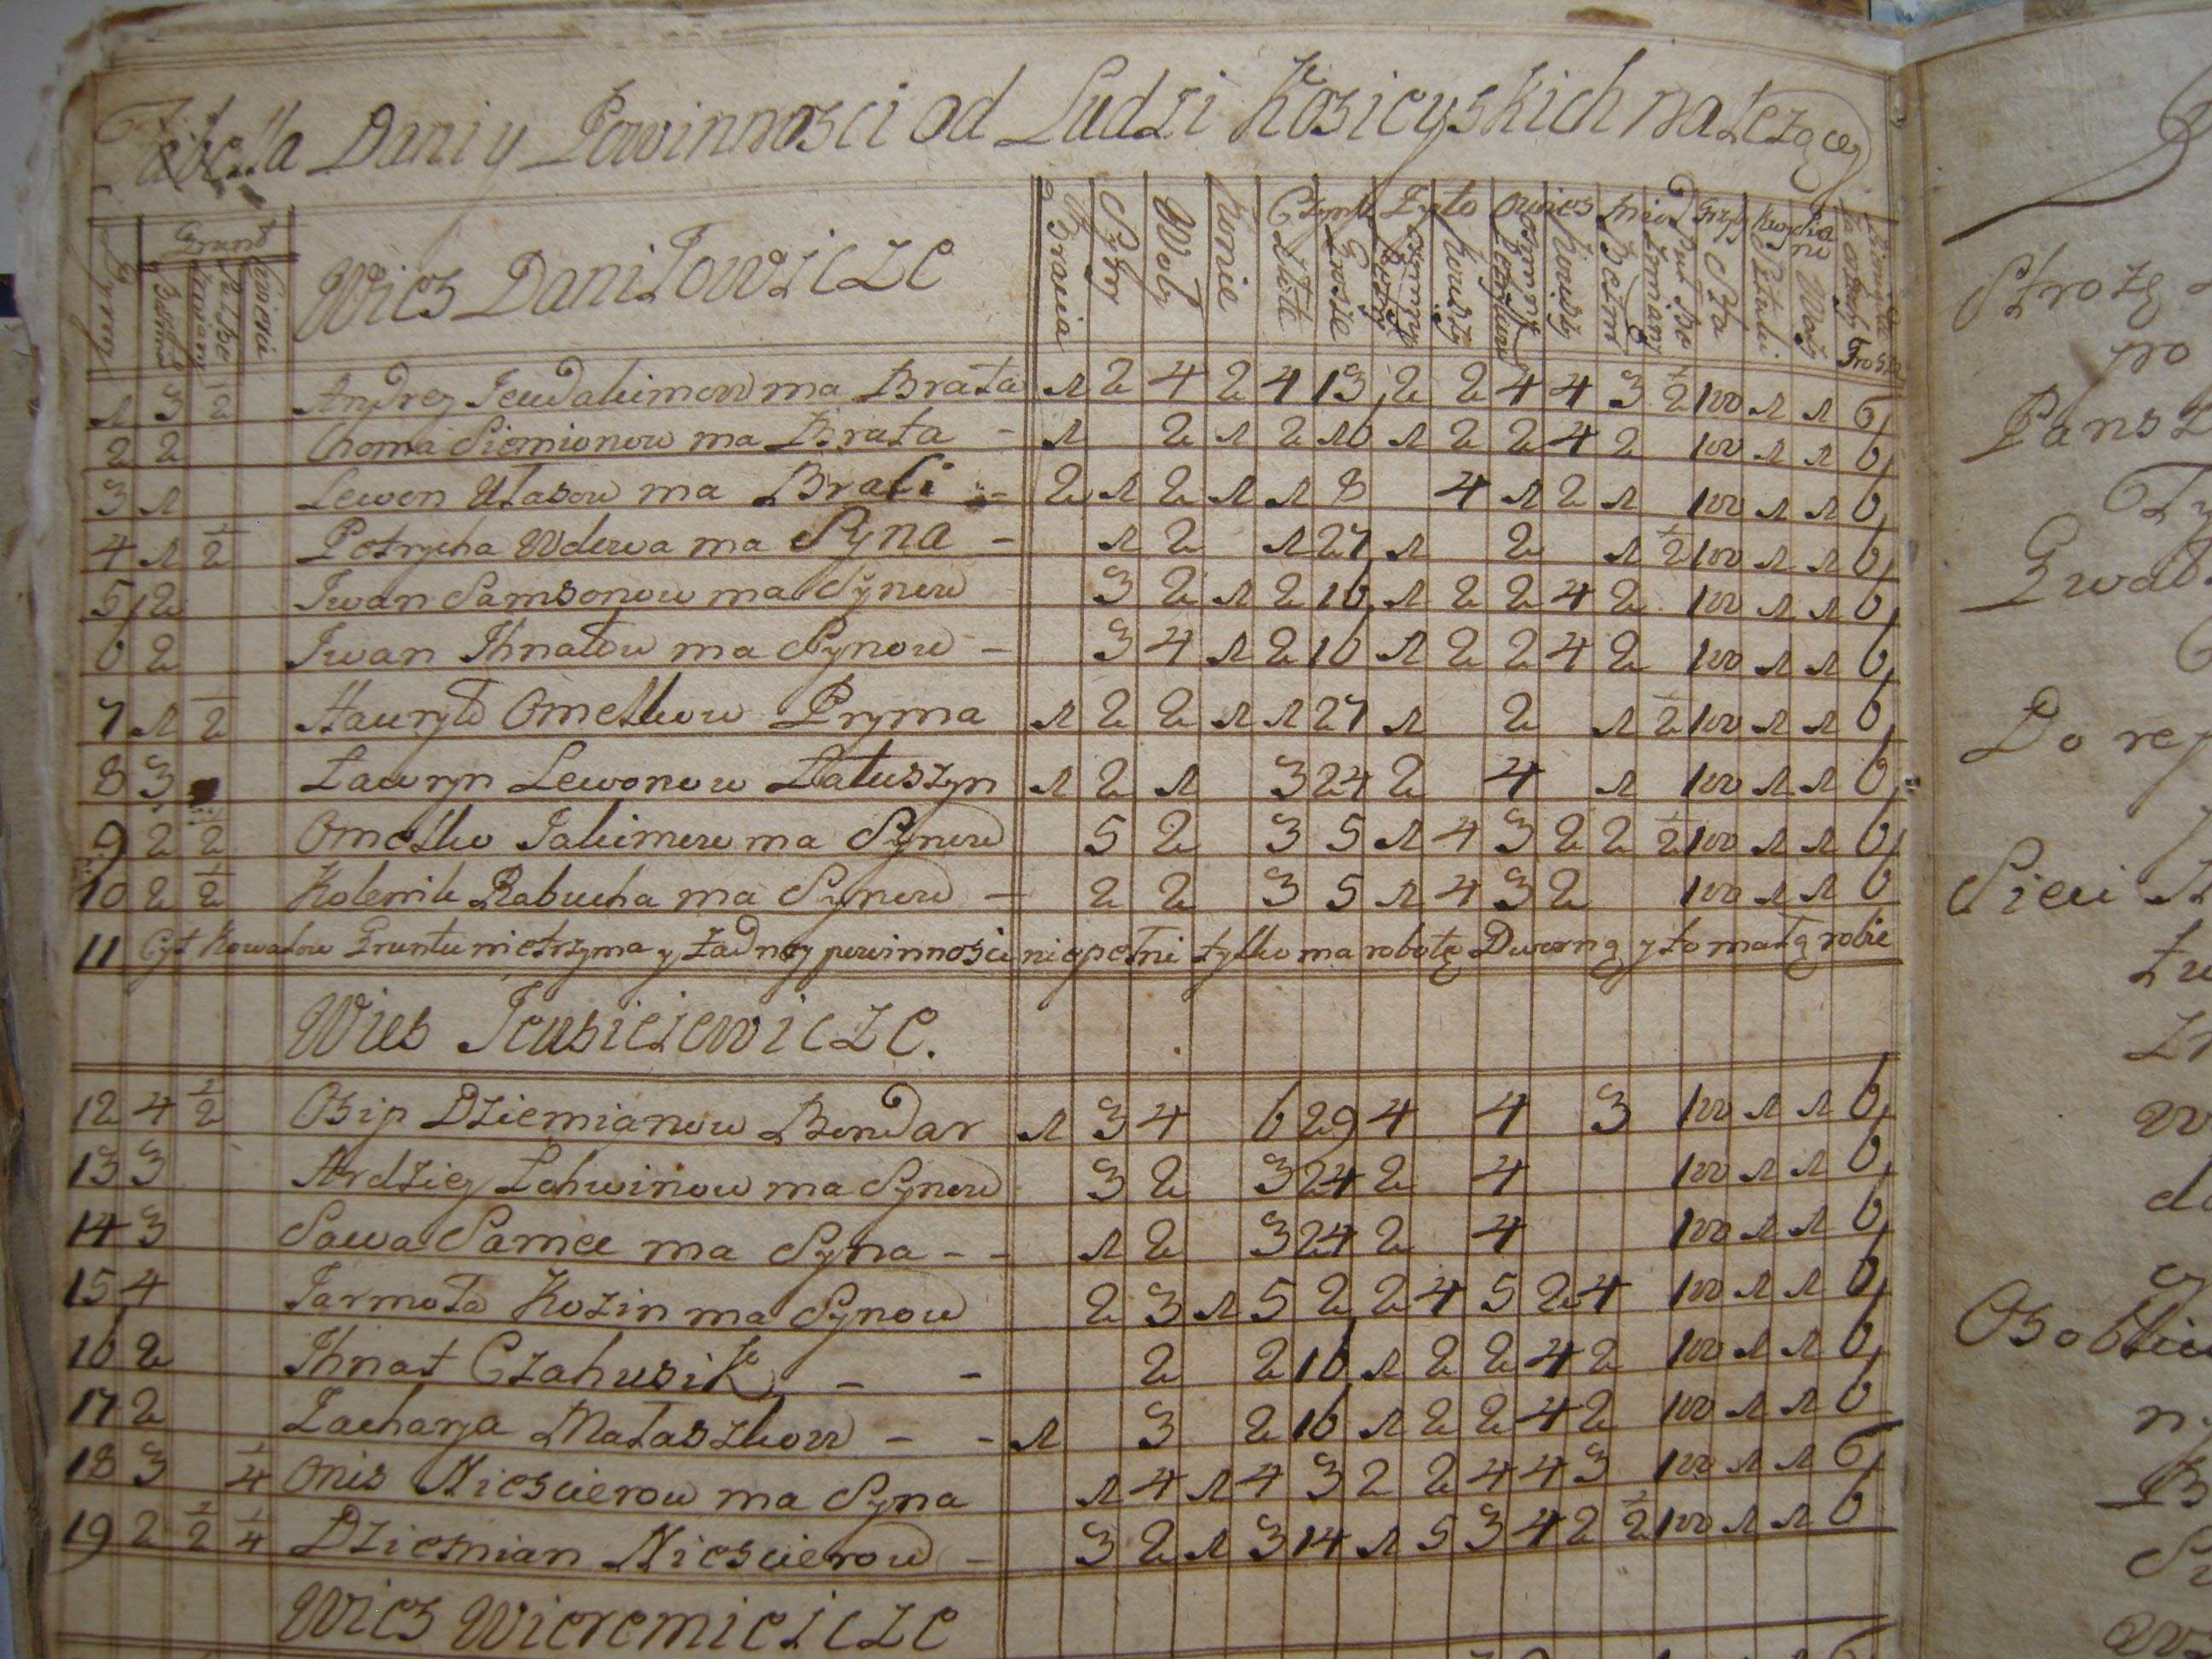 Tabella Dani y Powinnosci od Ludzi Kosicyskich należącey
Grunt
Wies Daniłowicze
Bracia Syny Woły Konie Czynsz Złote Grosze Żyto Kowszy Owies Kowszy Miod Grzyby Sta Kury Woły Grosze
1 3 1/2 Andrey Jewdakimow ma Brata 1 2 4 2 4 13 2 2 4 4 3 1/2 100 1 1 6
2 2 Choma Siemionow ma Brata - 1 2 1 2 16 1 2 2 4 2 100 1 1 6
3 1 Lewon Ułasow ma Braci 2 1 2 1 1 8 4 1 2 1 100 1 1 6
4 1 1/2 Petrycha Wdowa ma Syna - 1 2 1 27 1 2 1 1/2 100 1 1 6
5 2 Iwan Samsonow ma Synow 3 2 1 2 16 1 2 2 4 2 100 1 1 6
6 2 Iwan Ihnatow ma Synow - 3 4 1 2 16 1 2 2 4 2 100 1 1 6
7 1 1/2 Hawryło Omelkow Pryma 1 2 2 1 1 27 1 2 1 1/2 100 1 1 6
8 3 Ławryn Lewonow 1 2 1 3 24 2 4 1 100 1 1 6
9 2 1/2 Omelko Jakimow ma Synow 5 2 3 5 1 4 3 2 2 1/2 100 1 1 6
10 2 1/2 Kolenik Rabucha ma Synow - 2 2 3 5 1 4 3 2 100 1 1 6
11 Cyt Kowalow Gruntu nietrzyma y żadney powinnosci niepełni tylko ma robotę Dworną y to małą robie
Wies Jewsieiewicze.
12 4 1/2 Osip Dziemianow Bondar 1 3 4 6 29 4 4 3 100 1 1 6
13 3 Ardziey Łohwinow ma Synow 3 2 3 24 2 4 100 1 1 6
14 3 Sawa Samce ma Syna - - 1 2 3 24 2 4 100 1 1 6
15 4 Jarmoła Kozin ma Synow 2 3 1 5 2 2 4 5 2 4 100 1 1 6
16 2 Ihnat Czahusik - - 2 2 16 1 2 2 4 2 100 1 1 6
17 2 Zacharja Mataszkow - - 1 3 2 16 1 2 2 4 2 100 1 1 6
18 3 1/4 Onis Niescierow ma Syna 1 4 1 4 3 2 2 4 4 3 100 1 1 6
19 2 1/2 1/4 Dziemian Niescierow - 3 2 1 3 14 1 5 3 4 2 1/2 100 1 1 6
Wies Wieremieicze
Strożę
Do